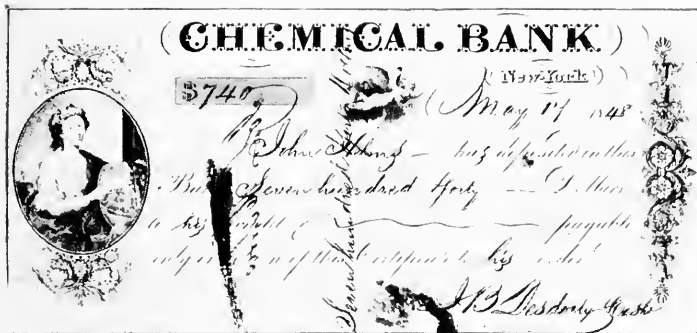 CHEMICAL BANK
New-York
$740
May 17 1848
John — has deposited in this
Bank Seven hundred Forty — Dollars
to his credit payable
only on of this Certificate to his order
J B Desdoity Cash
Seven hundred